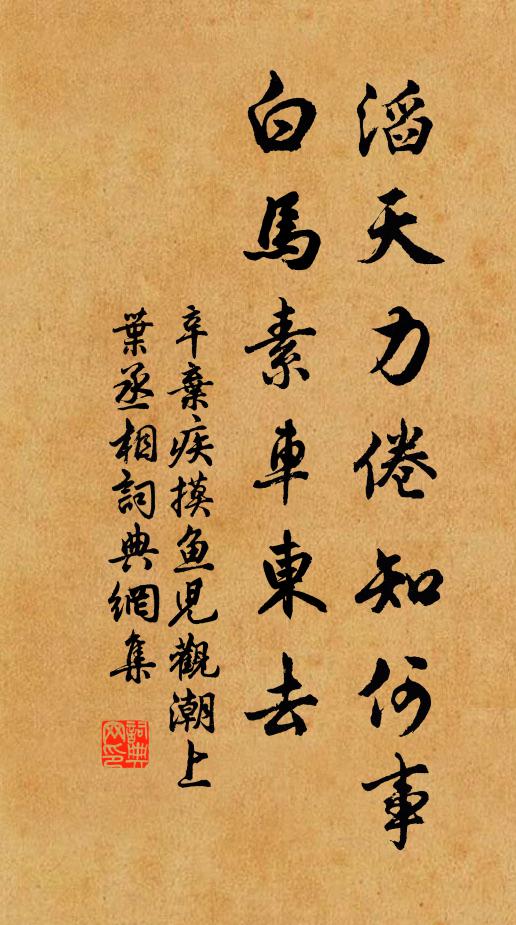 滔天力倦知何事
白馬素車東去
辛棄疾摸魚児觀潮上
葉丞相詞典網集
詞典
网印